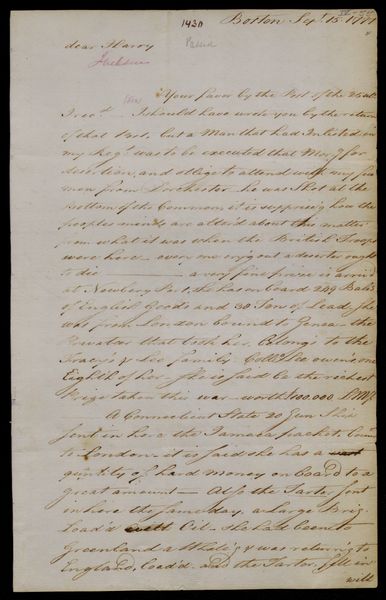 1430
Boston Sepr. 15. 1777
Passed
dear Harry
Jackson
Your favor by the Post of the 25 ult.
I recd. I should have wrote you by the return
of that Post, but a Man that had Inlisted in
my Regt. was to be executed that Morng for
desertion, and oblig'd to attend with my
men from Dorchester he was Shot at the
Bottom of the Common, it is suprizing how the
peoples minds are alter'd about this matter
from what it was when the British Troops
were here — every one crying out a deserter ought
to die — a very fine prize is arriv'd
at Newbury Port, the has on board 249 Bales
of English Goods and 30 Ton of Lead, She
was from London bound to Genoa — the
Privateer that took her, belongs to the
Tracy's & Lee family Collo. Lee owns one
Eighth of her. She is said to be the richest
Prize taken this war — worth 100,000
A Connecticut State 20 Gun Ship
sent in here the Jamaca packet, bound
to London — it is said she has a
quantity of hard money on board to a
great amount — Also the Tartar sent
in here the same day, a large Brig.
Load'd with Oil — she had been to
Greenland a Whale'g & was returng to
England, load'd. and the Tartar, fell in
with